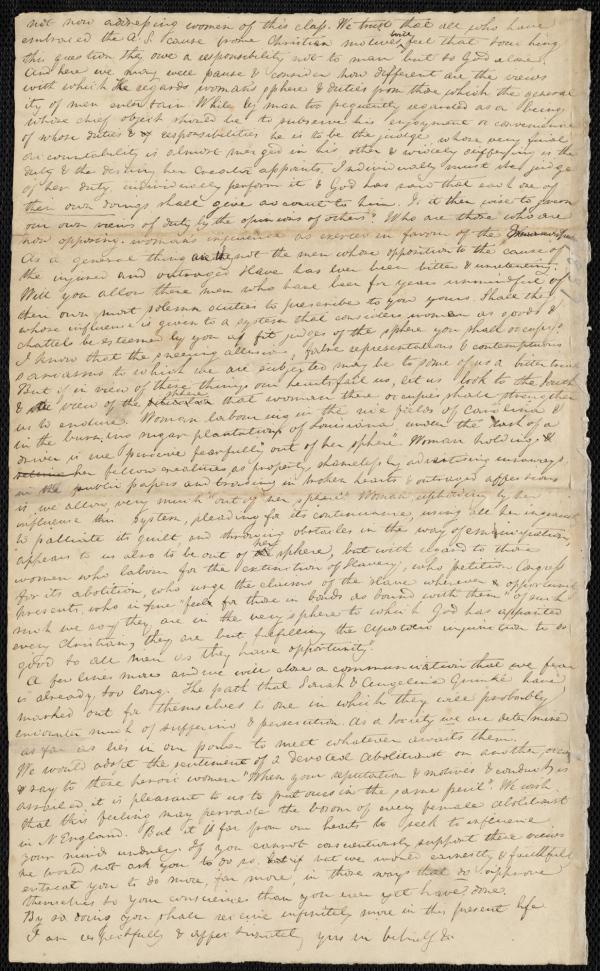 not now addressing women of this class. We trust that all who have
embraced the A.S. cause from Christian motives will feel that touching
this question they owe a responsibility not to man but to God alone.
And here we may well pause & consider how different are the views
with which He regards woman's sphere & duties from those which the general
ity of men entertain. While by man too frequently regarded as a being
whose chief object should be to subserve his enjoyment or convenience
of whose duties & responsibilities he is to be the judge whose very
accountability is almost merged in his other & widely differing is the
duty & the destiny her Creator appoints. Individually must she judge
of her duty individually perform it & God has said that each one of
their own doings shall give account to him. Is it then wise to form
our own views of duty by the opinions of others? Who are those who are
now opposing woman's influence as exerted in favour of the
As a general thing are they not the men whose opposition to the cause of
the injured and outraged slave has ever been bitter & unrelenting.
Will you allow these men who have been for years unmindful of
their own most solemn duties to prescribe to you yours. Shall they
whose influence is given to a system that considers woman as goods &
chattels be esteemed by you as fit judges of the sphere you shall occupy?
I know that the sneering allusions, false representations & contemptuous
sarcasms to which we are subjected may be to some of us a bitter
But if in view of these things our hearts fail us, let us look to the South
& the view of the sphere that woman there occupies shall strengthen
us to endure. Woman labouring in the rice fields of Carolina &
in the burning sugar plantations of Louisiana under the lash of a
driver is we perceive fearfully "out of her sphere". Woman holding
her fellow creatures as property, shamelessly advertising runaways
in the public papers and trading in broken hearts & outraged affections
is, we allow, very much "out of her sphere". Woman upholding by her
influence this system, pleading for its continuance, using all her
to palliate its guilt, and throwing obstacles in the way of emancipation,
appears to us also to be out of her sphere, but with regard to those
women who labour for the extinction of Slavery, who petition Congress
for its abolition, who urge the claims of the slave wherever opportunity
presents, who in fine "feel for those in bonds as bound with them" of such
such we say they are in the very sphere to which God has appointed
every Christian, they are but fulfilling the Apostolic injunction to do
good to all men as they have opportunity".
A few lines more and we will close a communication that we fear
is already too long. The path that Sarah & Angelina Grimké have
marked out for themselves is one in which they will probably
encounter much of suffering & persecution. As a Society we are determined
as far as lies in our power to meet whatever awaits them.
We would adopt the sentiment of a devoted Abolitionist on another
& say to these heroic women "When your reputation & motives & conduct is
assailed, it is pleasant to us to put ours in the same peril". We wish
that this feeling may pervade the bosom of every female abolitionist
in N England. But it is far from our hearts to seek to influence
your minds unduly. If you cannot conscientiously support these views
we would not ask you to do so, but we would earnestly & faithfully
entreat you to do more, far more, in those ways that do approve
themselves to your conscience than you ever yet have done.
By so doing you shall receive infinitely more in this present life
I am respectfully & affectionately yrs in behalf &c